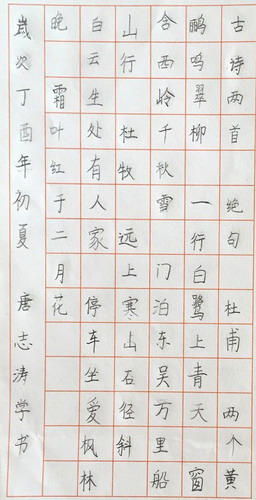 古诗两首 绝句 杜甫 两个黄
鹂鸣翠柳 一行白鹭上青天 窗
含西岭千秋雪 门泊东吴万里船
山行 杜牧 远上寒山石径斜
白云生处有人家 停车坐爱枫林
晚 霜叶红于二月花
岁次丁酉年初夏 唐志涛学书